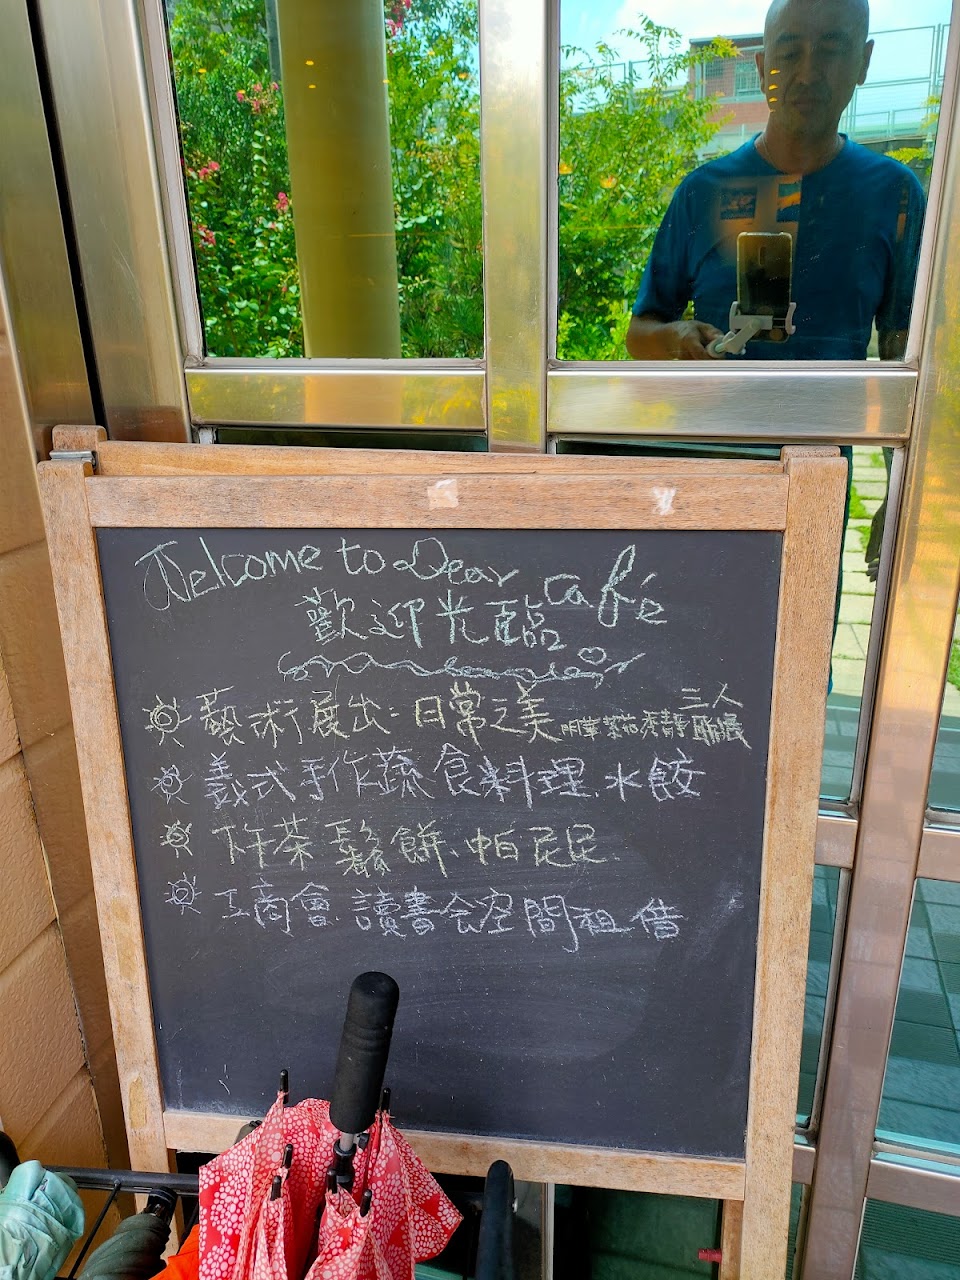 Welcome to Dear Café
歡迎光臨
藝術展出：日常之美 三人聯展
義式手作蔬食料理、水餃
下午茶 鬆餅、帕尼尼、
工商會、讀書会空間租借